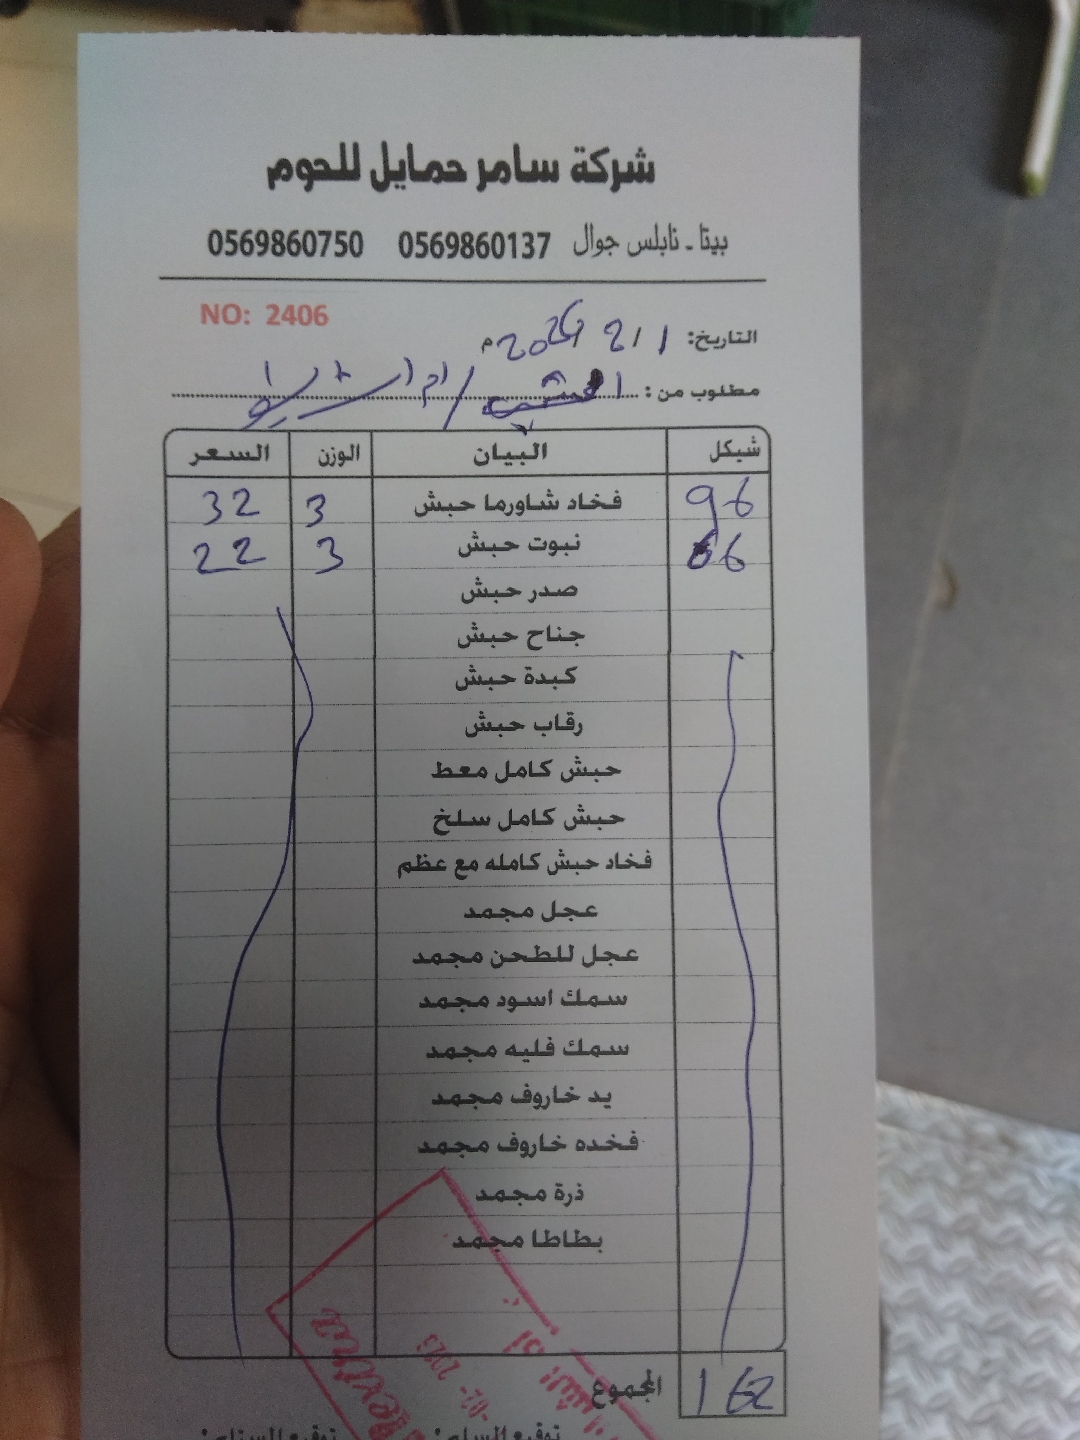 شركة سامر حمايل للحوم
بيتا - نابلس جوال 0569860137 0569860750
NO: 2406
التاريخ: 1 / 2 / 2026 م
مطلوب من : / ام الشرايط
شيكل البيان الوزن السعر
96 فخاد شاورما حبش 3 32
66 نبوت حبش 3 22
صدر حبش
جناح حبش
كبدة حبش
رقاب حبش
حبش كامل معط
حبش كامل سلخ
فخاد حبش كامله مع عظم
عجل مجمد
عجل للطحن مجمد
سمك اسود مجمد
سمك فليه مجمد
يد خاروف مجمد
فخده خاروف مجمد
ذرة مجمد
بطاطا مجمد
المجموع 162
توقيع المسلم: توقيع المستلم: